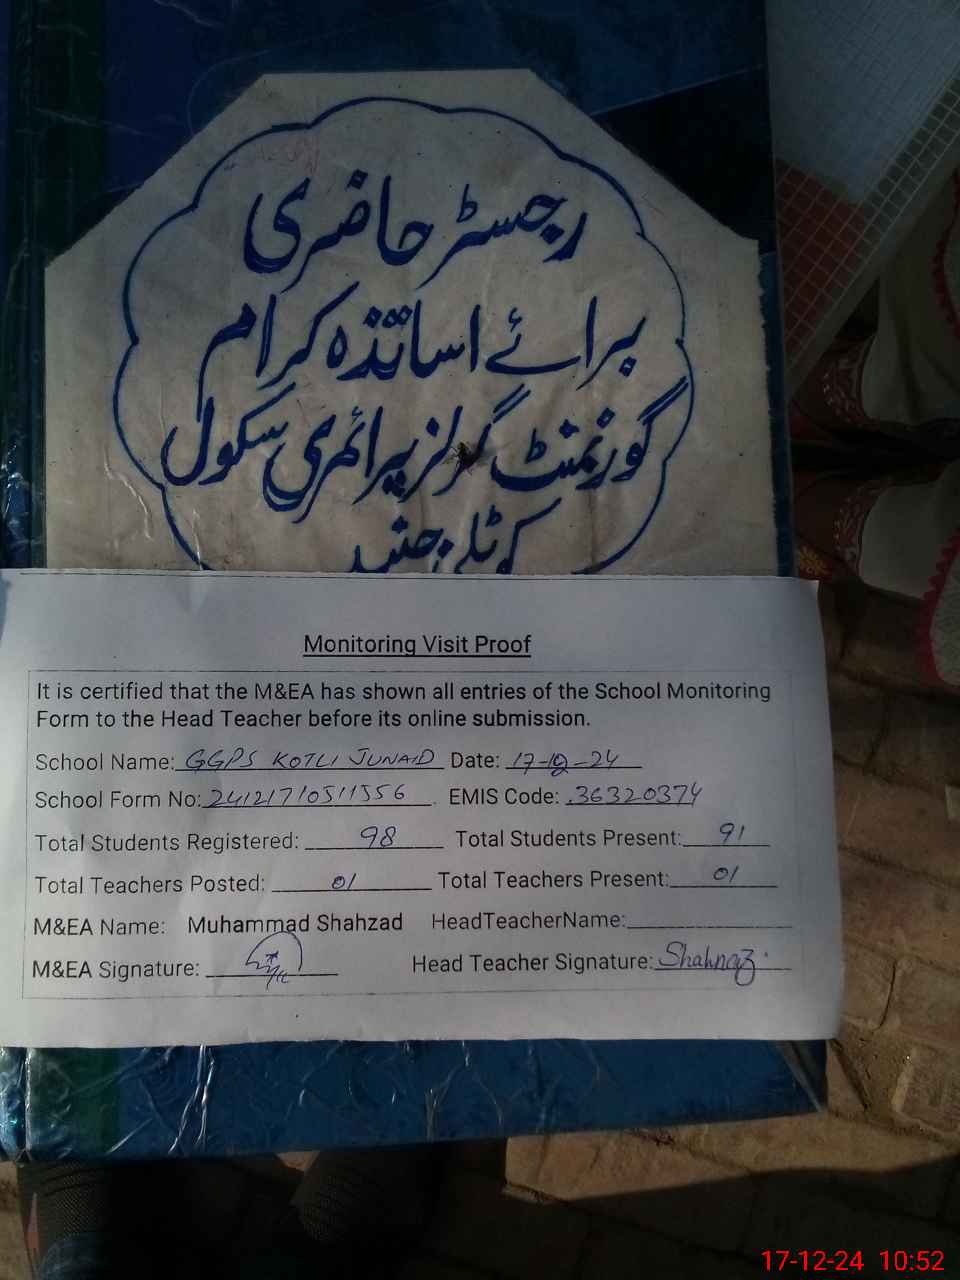 رجسٹر حاضری
برائے اساتذہ کرام
گورنمنٹ گرلز پرائمری سکول
کوٹلی جنید
Monitoring Visit Proof
It is certified that the M&EA has shown all entries of the School Monitoring
Form to the Head Teacher before its online submission.
School Name: GGPS KOTLI JUNAID Date: 17-12-24
School Form No: 24121710511556 EMIS Code: 36320374
Total Students Registered: 98 Total Students Present: 91
Total Teachers Posted: 01 Total Teachers Present: 01
M&EA Name: Muhammad Shahzad HeadTeacherName:
M&EA Signature: Head Teacher Signature: Shahnaz
17-12-24 10:52